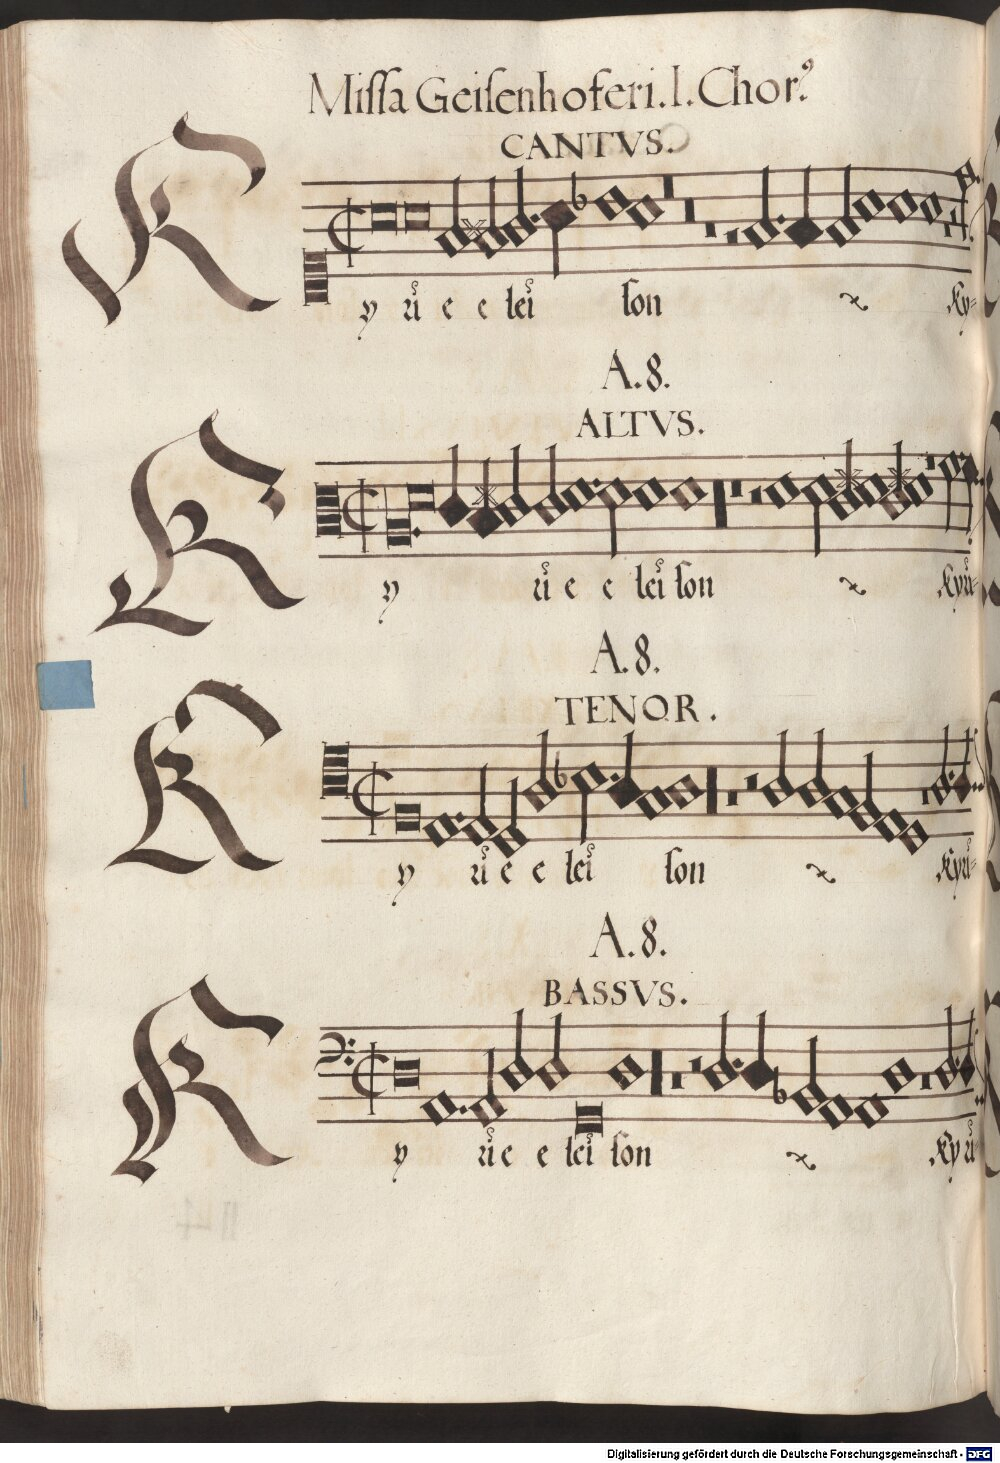 Missa Geisenhoferi. I. Chor⁹.
CANTVS.
K y ri e e lei son Ky=
A. 8.
ALTVS.
K y ri e e lei son Kyri=
A. 8.
TENOR.
K y ri e e lei son Kyri=
A. 8.
BASSVS.
K y ri e e lei son Kyri=
Digitalisierung gefördert durch die Deutsche Forschungsgemeinschaft - DFG